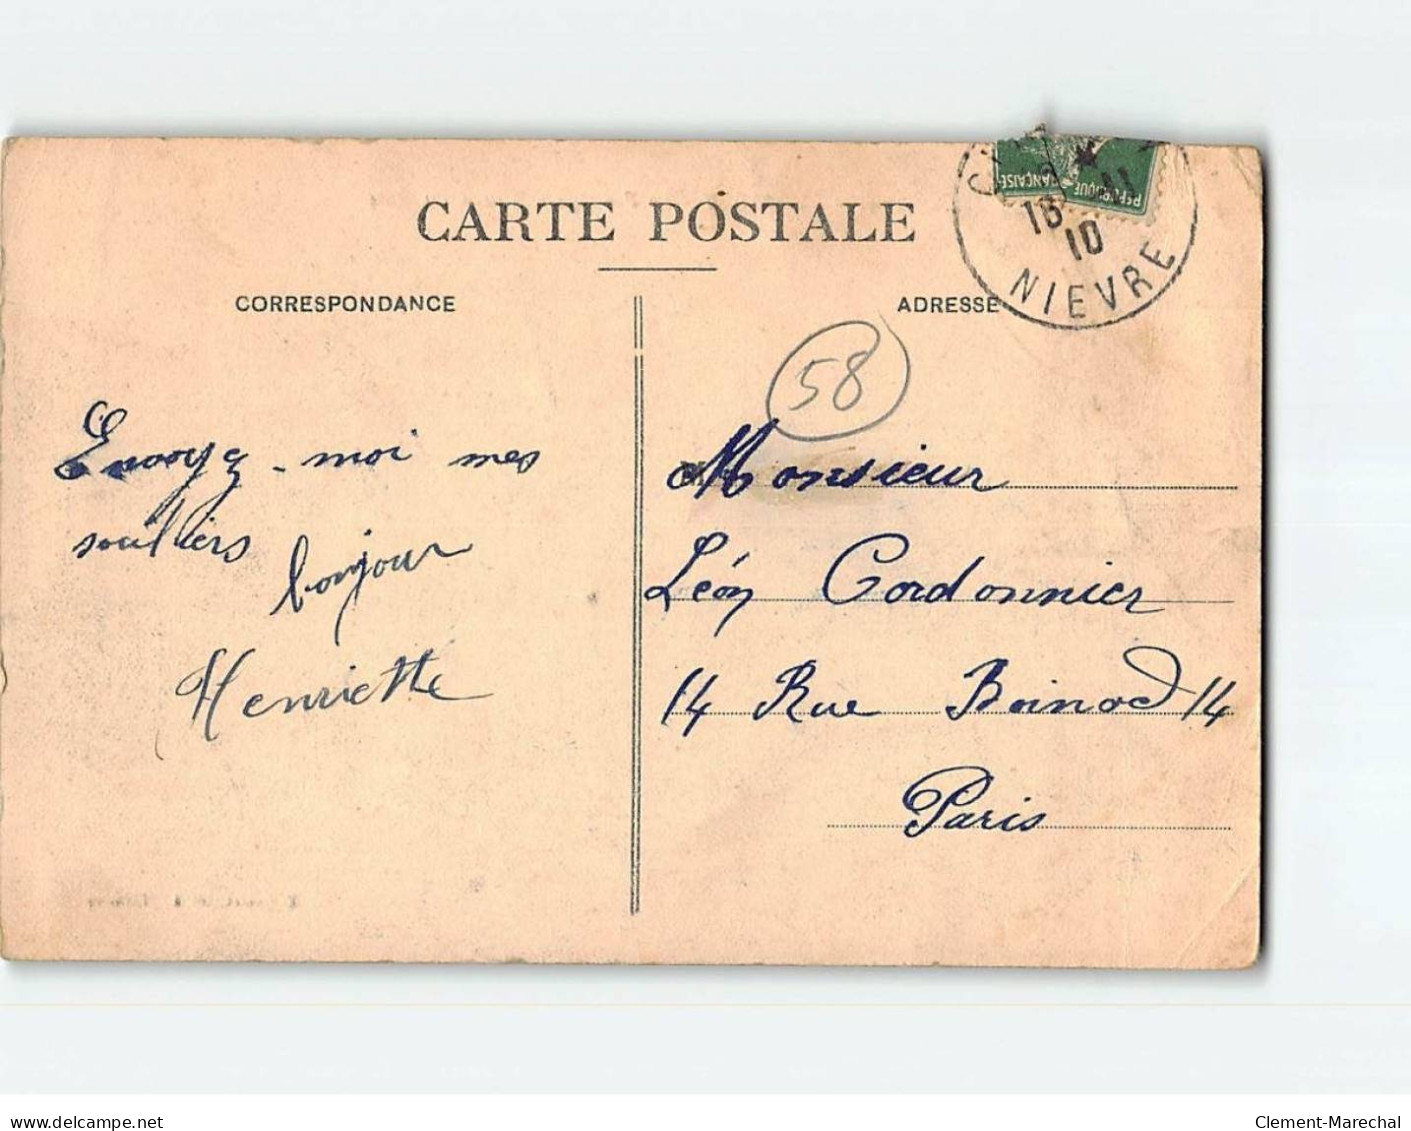 CARTE POSTALE
CORRESPONDANCE
ADRESSE
REPUBLIQUE
FRANÇAISE
18
11
10
NIEVRE
58
Envoyez-moi mes
souliers
bonjour
Henriette
Monsieur
Léon Cordonnier
14 Rue Boinod 14
Paris
www.delcampe.net
Clement-Marechal